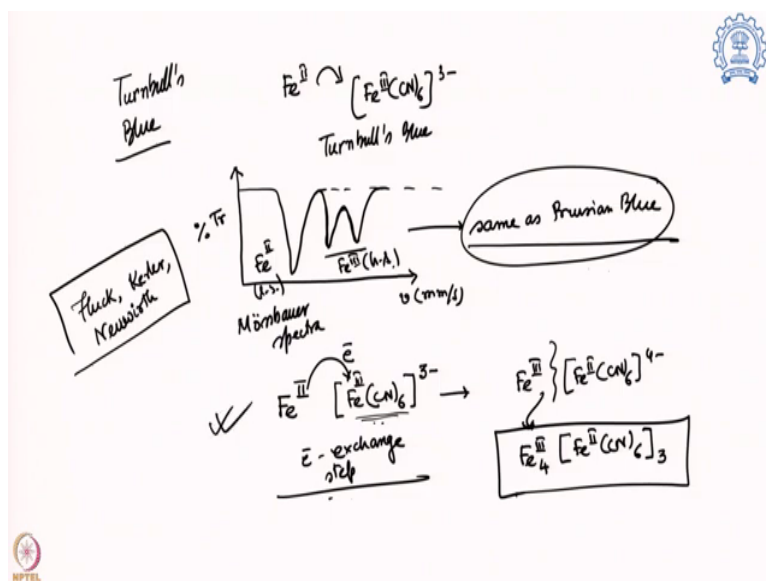 Turnbull's
Blue
Fe^II [Fe^III(CN)6]^3-
Turnbull's Blue
% Tr
Fe^II
(l.s.)
Fe^III (h.s.)
v (mm/s)
same as Prussian Blue
Mössbauer
spectra
Fluck, Kerler,
Neuwirth
ē
Fe^II [Fe^III(CN)6]^3- → Fe^III [Fe^II(CN)6]^4-
ē - exchange
step
Fe4^III [Fe^II(CN)6]3
NPTEL